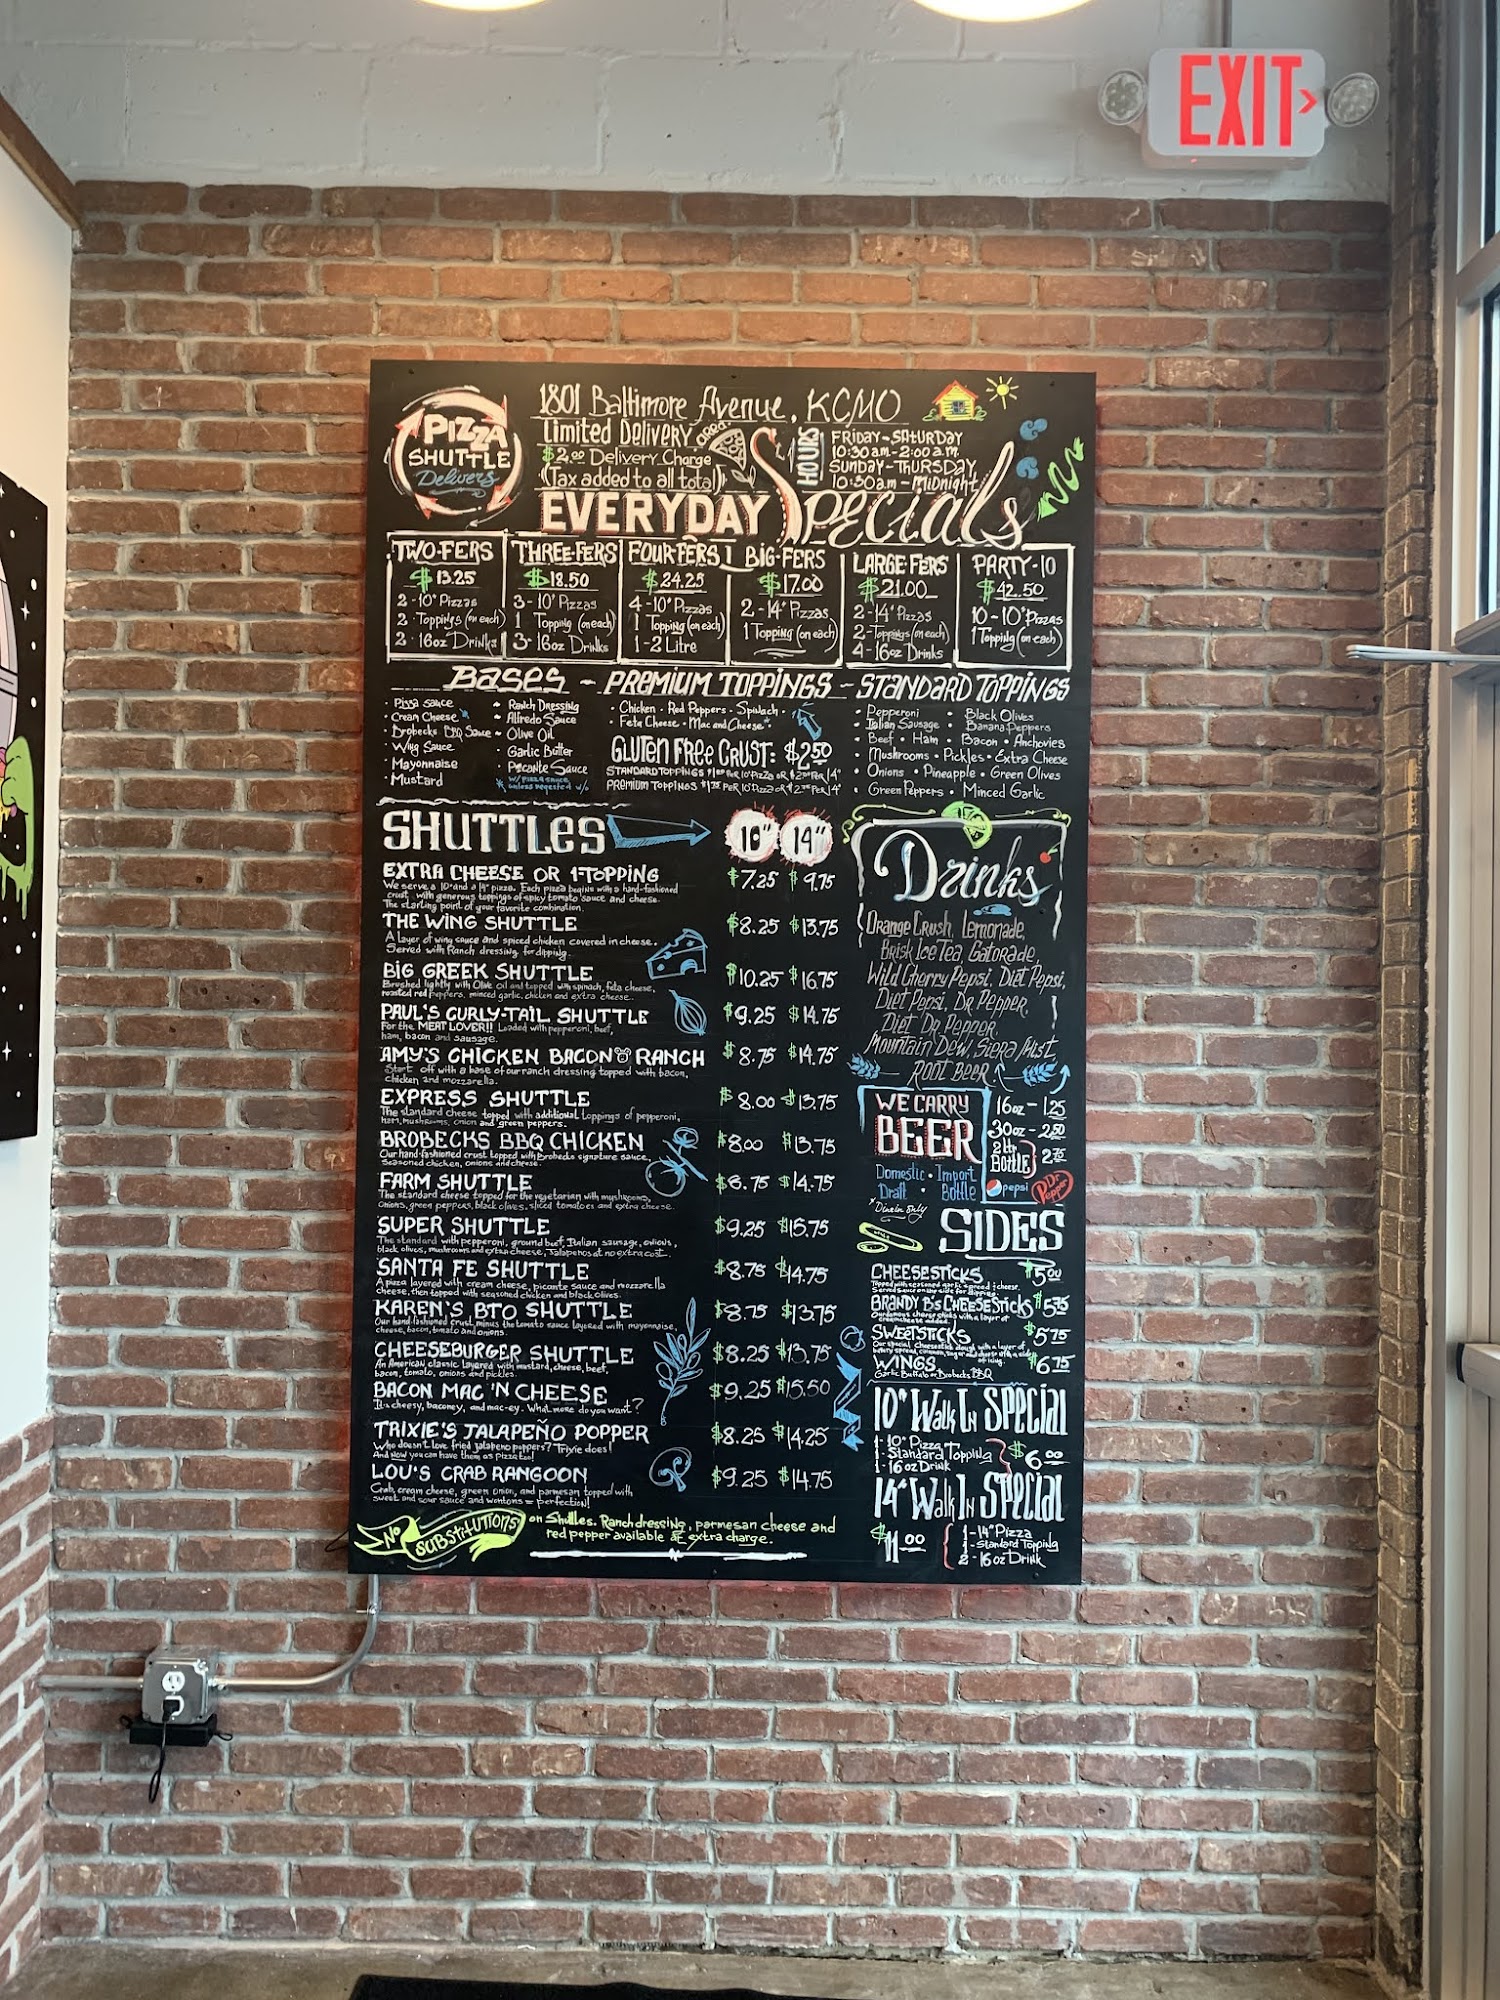 EXIT
PIZZA
SHUTTLE
Delivers
1801 Baltimore Avenue, KCMO
Limited Delivery area
$2.00 Delivery Charge
(Tax added to all total)
HOURS
FRIDAY-SATURDAY
10:30 a.m.-2:00 a.m.
SUNDAY-THURSDAY
10:30am-MIDNIGHT
EVERYDAY Specials
TWO-FERS
$13.25
2-10" Pizzas
2 Toppings (on each)
2 16oz Drinks
THREE-FERS
$18.50
3-10" Pizzas
1 Topping (on each)
3-16oz Drinks
FOUR-FERS
$24.25
4-10" Pizzas
1 Topping (on each)
1-2 Litre
BIG-FERS
$17.00
2-14" Pizzas
1 Topping (on each)
LARGE-FERS
$21.00
2-14" Pizzas
2-Toppings (on each)
4-16oz Drinks
PARTY-10
$42.50
10-10" Pizzas
1 Topping (on each)
BASES - PREMIUM TOPPINGS - STANDARD TOPPINGS
Pizza sauce
Cream Cheese
Brobecks BBQ Sauce
Wing Sauce
Mayonnaise
Mustard
Ranch Dressing
Alfredo Sauce
Olive Oil
Garlic Butter
Picante Sauce
* w/ pizza sauce
unless requested w/o
Chicken • Red Peppers • Spinach •
Feta Cheese • Mac and Cheese
GLUTEN FREE CRUST: $2.50
STANDARD TOPPINGS
PREMIUM TOPPINGS
Pepperoni • Black Olives
Italian Sausage • Banana Peppers
Beef • Ham • Bacon • Anchovies
Mushrooms • Pickles • Extra Cheese
Onions • Pineapple • Green Olives
Green Peppers • Minced Garlic
SHUTTLES 10" 14"
EXTRA CHEESE OR 1-TOPPING $7.25 $9.75
We serve a 10" and a 14" pizza. Each pizza begins with a hand-fashioned
crust, with generous toppings of spicy tomato sauce and cheese.
The starting point of your favorite combination.
THE WING SHUTTLE $8.25 $13.75
A layer of wing sauce and spiced chicken covered in cheese.
Served with Ranch dressing for dipping.
BIG GREEK SHUTTLE $10.25 $16.75
Brushed lightly with Olive Oil and topped with spinach, feta cheese,
roasted red peppers, minced garlic, chicken and extra cheese.
PAUL'S CURLY-TAIL SHUTTLE $9.25 $14.75
For the MEAT LOVER!! Loaded with pepperoni, beef,
ham, bacon and sausage.
AMY'S CHICKEN BACON RANCH $8.75 $14.75
Start off with a base of our ranch dressing topped with bacon,
chicken and mozzarella.
EXPRESS SHUTTLE $8.00 $13.75
The standard cheese topped with additional toppings of pepperoni,
ham, mushrooms, onion and green peppers.
BROBECKS BBQ CHICKEN $8.00 $13.75
Our hand-fashioned crust topped with Brobecks signature sauce,
Seasoned chicken, onions and cheese.
FARM SHUTTLE $8.75 $14.75
The standard cheese topped for the vegetarian with mushrooms,
onions, green peppers, black olives, sliced tomatoes and extra cheese.
SUPER SHUTTLE $9.25 $15.75
The standard with pepperoni, ground beef, Italian sausage, onions,
black olives, mushrooms and extra cheese, Jalapenos at no extra cost.
SANTA FE SHUTTLE $8.75 $14.75
A pizza layered with cream cheese, picante sauce and mozzarella
cheese, then topped with seasoned chicken and black olives.
KAREN'S BTO SHUTTLE $8.75 $13.75
Our hand-fashioned crust minus the tomato sauce layered with mayonnaise,
cheese, bacon, tomato and onions.
CHEESEBURGER SHUTTLE $8.25 $13.75
An American classic layered with mustard, cheese, beef,
bacon, tomato, onions and pickles.
BACON MAC 'N CHEESE $9.25 $15.50
It's cheesy, baconey, and mac-ey. What more do you want?
TRIXIE'S JALAPEÑO POPPER $8.25 $14.25
Who doesn't love fried jalapeno poppers? Trixie does!
And NOW you can have them as pizza too!
LOU'S CRAB RANGOON $9.25 $14.75
Crab, cream cheese, green onion, and parmesan topped with
sweet and sour sauce and wontons = perfection!
NO SUBSTITUTIONS on Shuttles. Ranch dressing, parmesan cheese and
red pepper available at extra charge.
Drinks
Orange Crush, Lemonade,
Brisk Ice Tea, Gatorade,
Wild Cherry Pepsi, Diet Pepsi,
Diet Pepsi, Dr. Pepper,
Diet Dr. Pepper,
Mountain Dew, Sierra Mist
ROOT BEER
WE CARRY
BEER
Domestic • Import
Draft • Bottle
*Dine in only
16oz - 1.25
30oz - 2.50
2 ltr Bottle 2.75
pepsi
Dr Pepper
SIDES
CHEESESTICKS $5.00
Topped with seasoned garlic spread & cheese.
Served sauce on the side for dipping.
BRANDY B'S CHEESESTICKS $5.75
Our famous cheese sticks with a layer of
cream cheese added.
SWEETSTICKS $5.75
WINGS $6.75
Garlic Buffalo or Brobecks BBQ
10" Walk In SPECIAL
1-10" Pizza
1-Standard Topping
1-16 oz Drink
$6.00
14" Walk In SPECIAL
$11.00
1-14" Pizza
1-Standard Topping
2-16 oz Drink